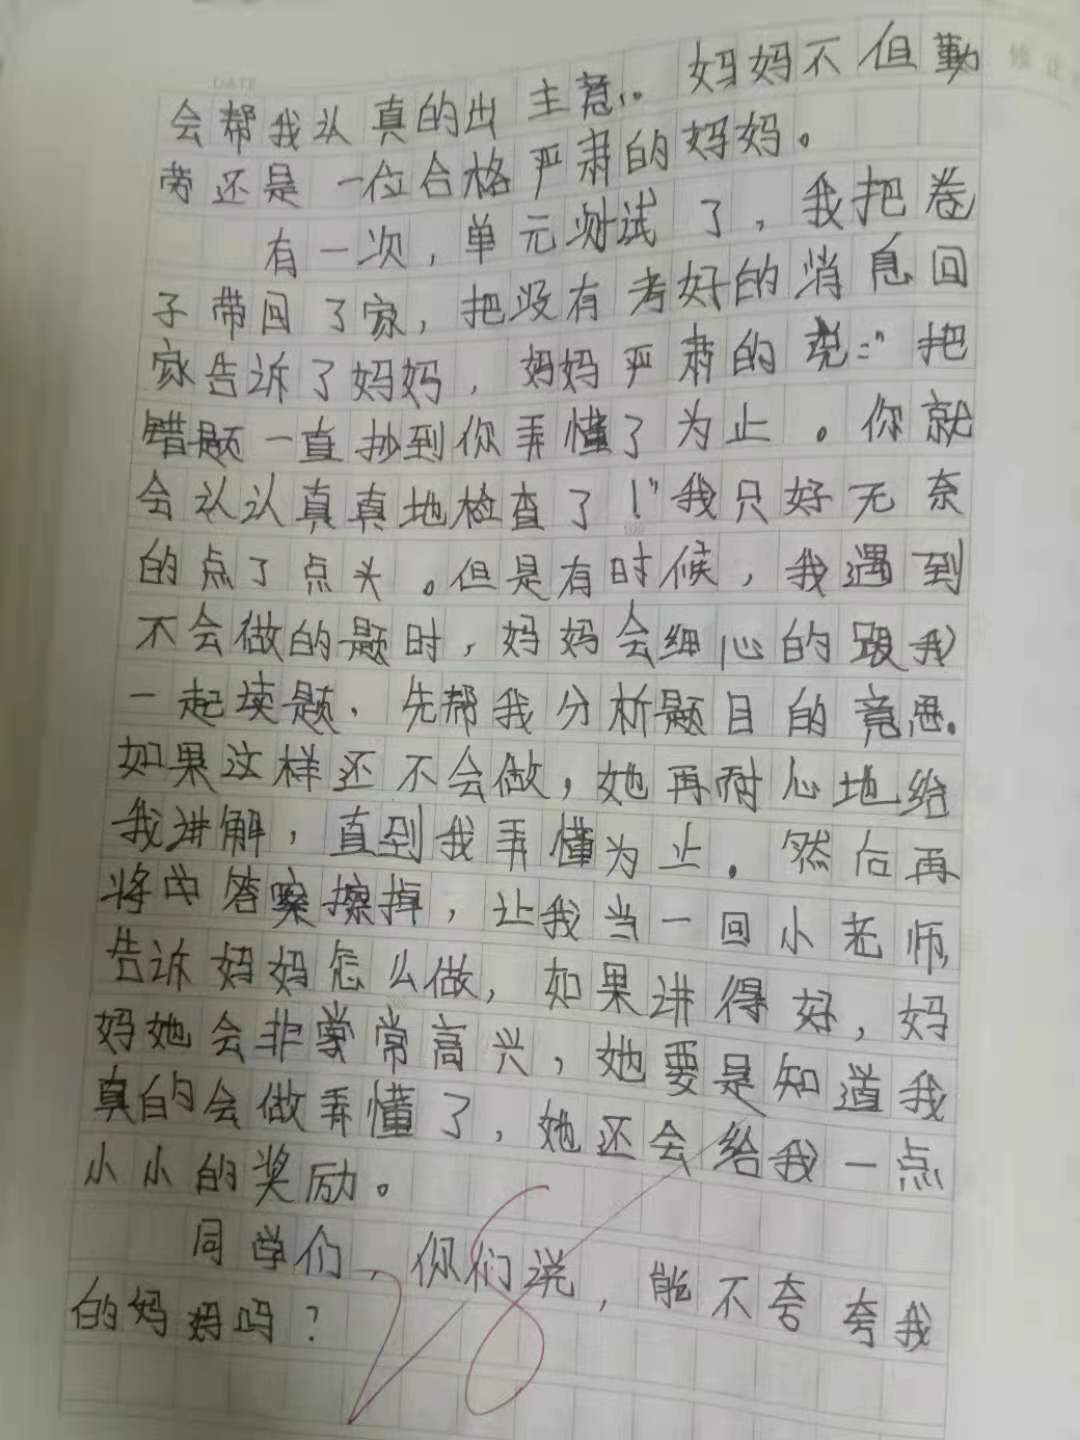 DATE
会帮我认真的出主意。妈妈不但勤
劳还是一位合格严肃的妈妈。
有一次,单元测试了,我把卷
子带回了家,把没有考好的消息回
家告诉了妈妈,妈妈严肃的说:"把
错题一直抄到你弄懂了为止。你就
会认认真真地检查了!"我只好无奈
的点了点头。但是有时候,我遇到
不会做的题时,妈妈会细心的跟我
一起读题,先帮我分析题目的意思。
如果这样还不会做,她再耐心地给
我讲解,直到我弄懂为止。然后再
将答案擦掉,让我当一回小老师,
告诉妈妈怎么做,如果讲得好,妈
妈她会非常高兴,她要是知道我
真的会做弄懂了,她还会给我一点
小小的奖励。
同学们,你们说,能不夸夸我
的妈妈吗?
28